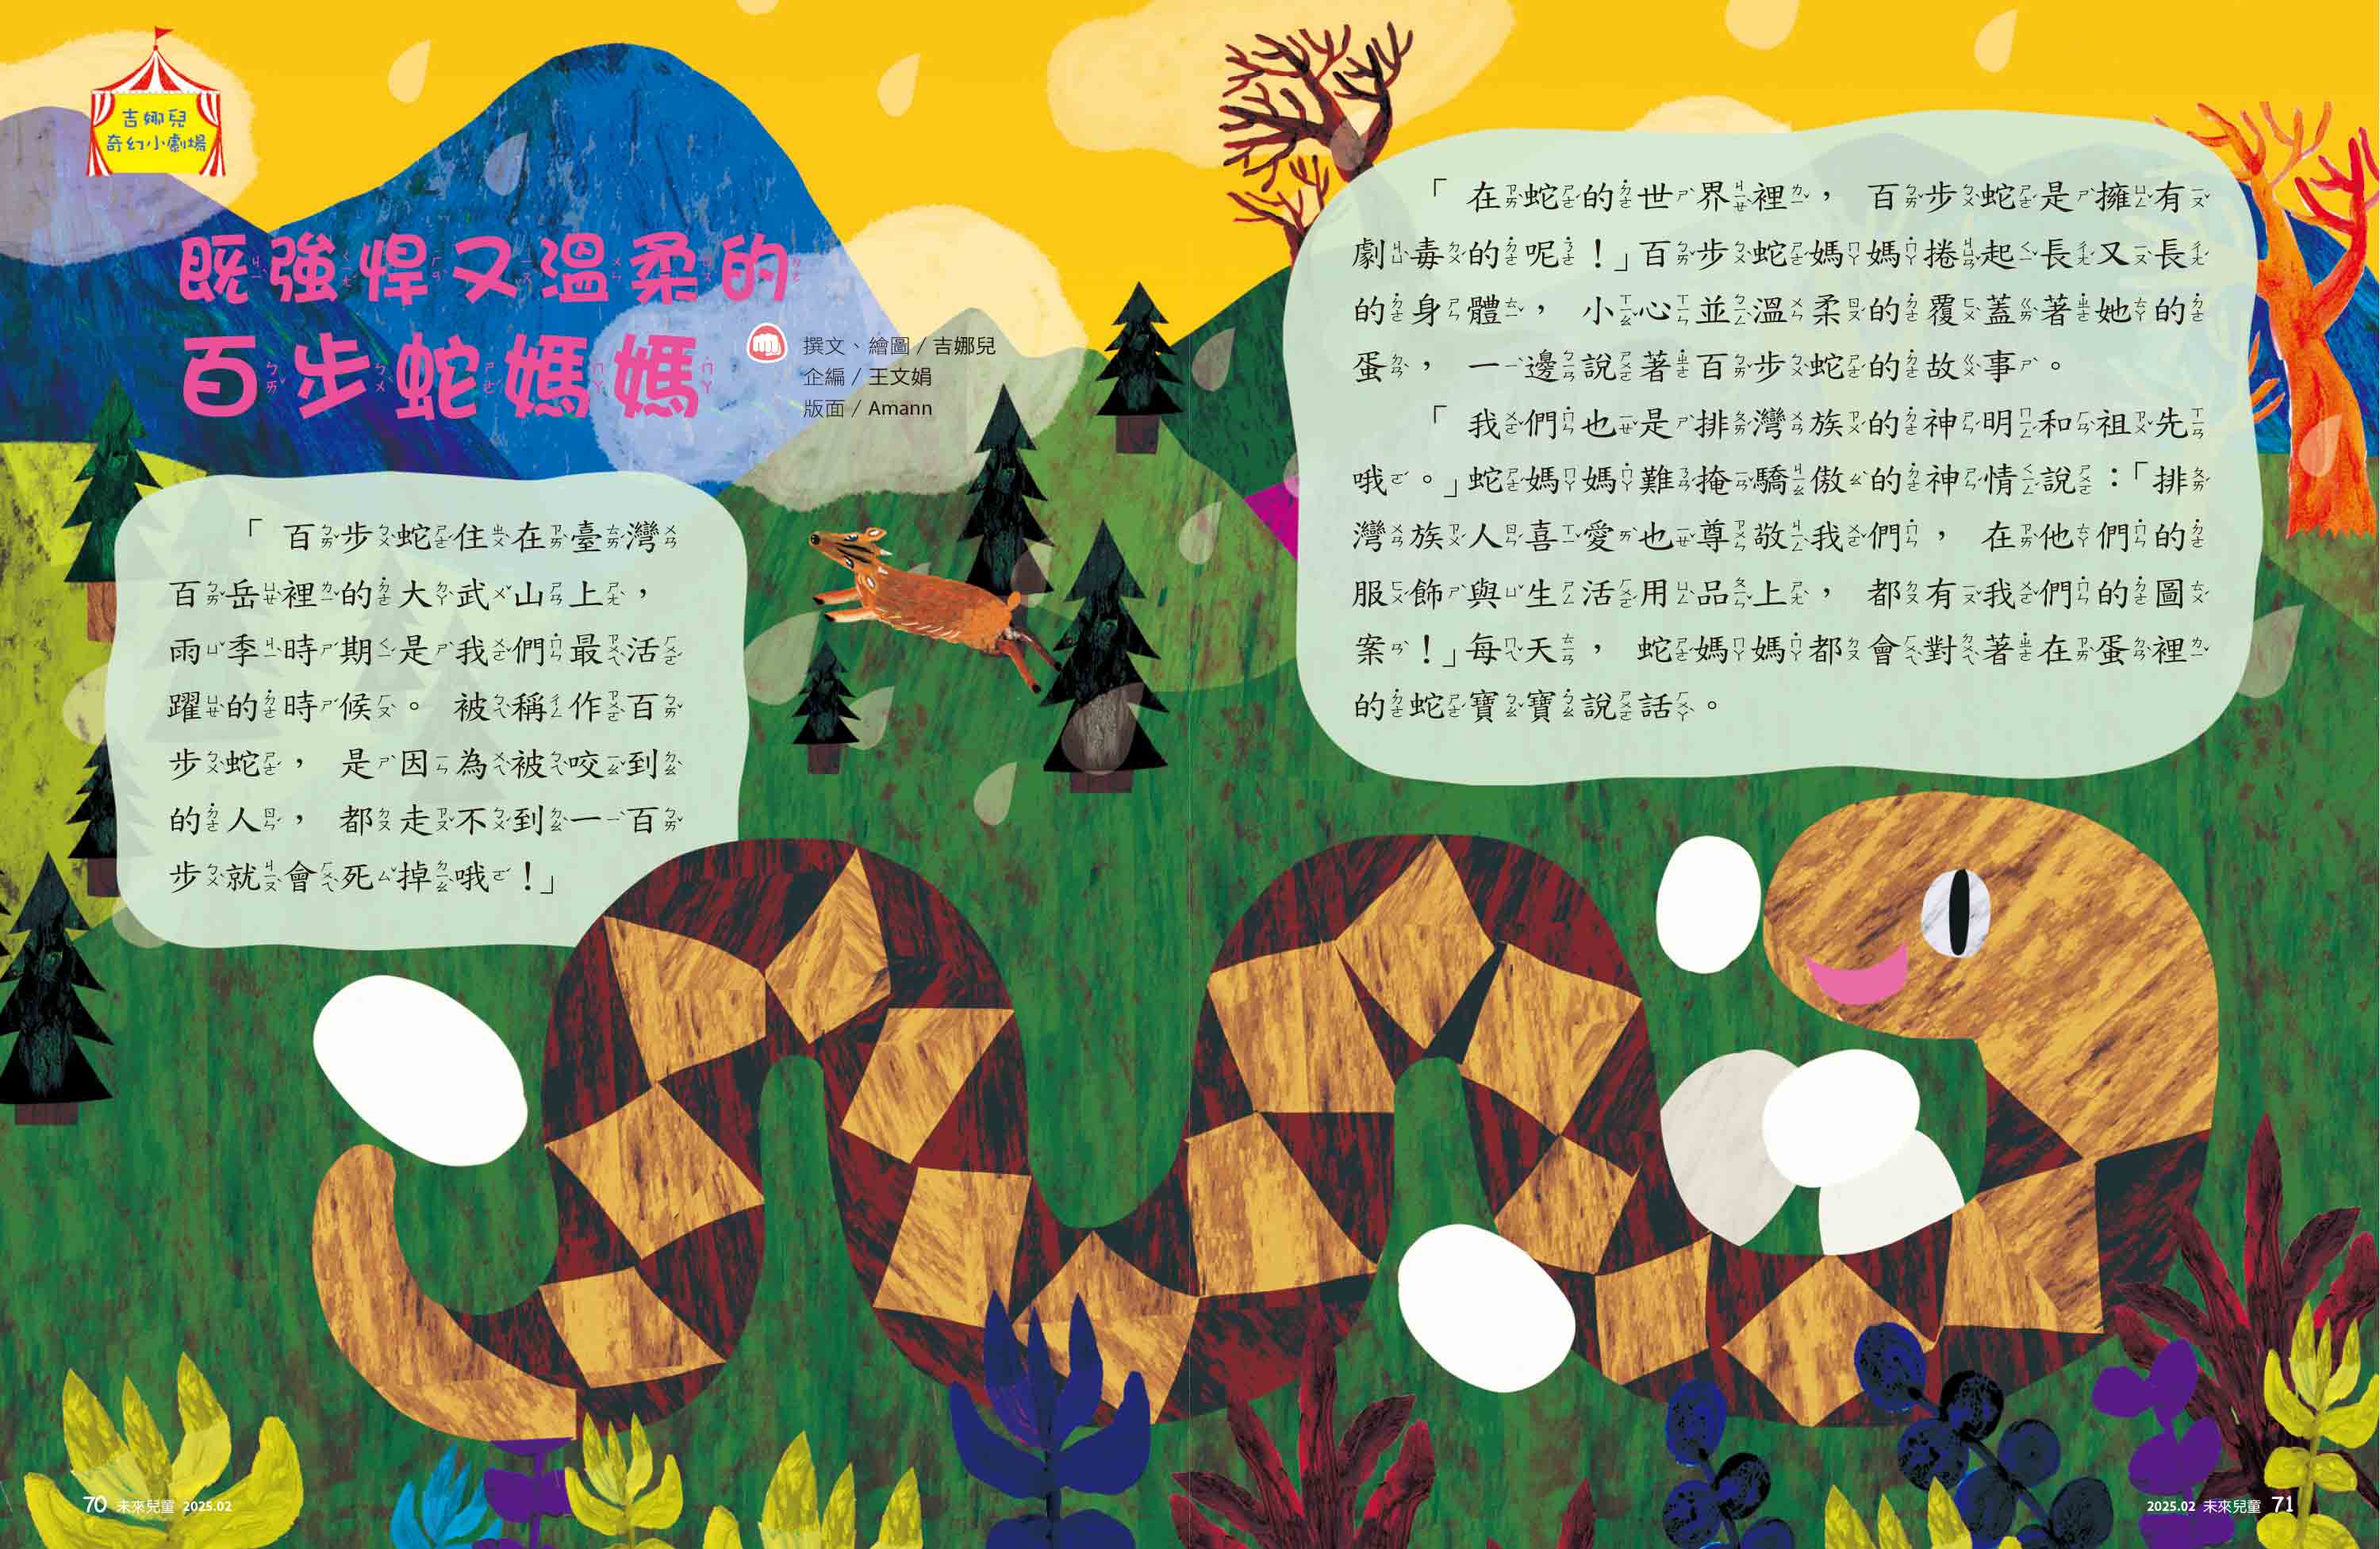 吉娜兒
奇幻小劇場
既強悍又溫柔的
百步蛇媽媽
撰文、繪圖 / 吉娜兒
企編 / 王文娟
版面 / Amann
「百步蛇住在臺灣
百岳裡的大武山上，
雨季時期是我們最活
躍的時候。被稱作百
步蛇，是因為被咬到
的人，都走不到一百
步就會死掉哦！」
「在蛇的世界裡，百步蛇是擁有
劇毒的呢！」百步蛇媽媽捲起長又長
的身體，小心並溫柔的覆蓋著她的
蛋，一邊說著百步蛇的故事。
「我們也是排灣族的神明和祖先
哦。」蛇媽媽難掩驕傲的神情說：「排
灣族人喜愛也尊敬我們，在他們的
服飾與生活用品上，都有我們的圖
案！」每天，蛇媽媽都會對著在蛋裡
的蛇寶寶說話。
70 未來兒童 2025.02
2025.02 未來兒童 71